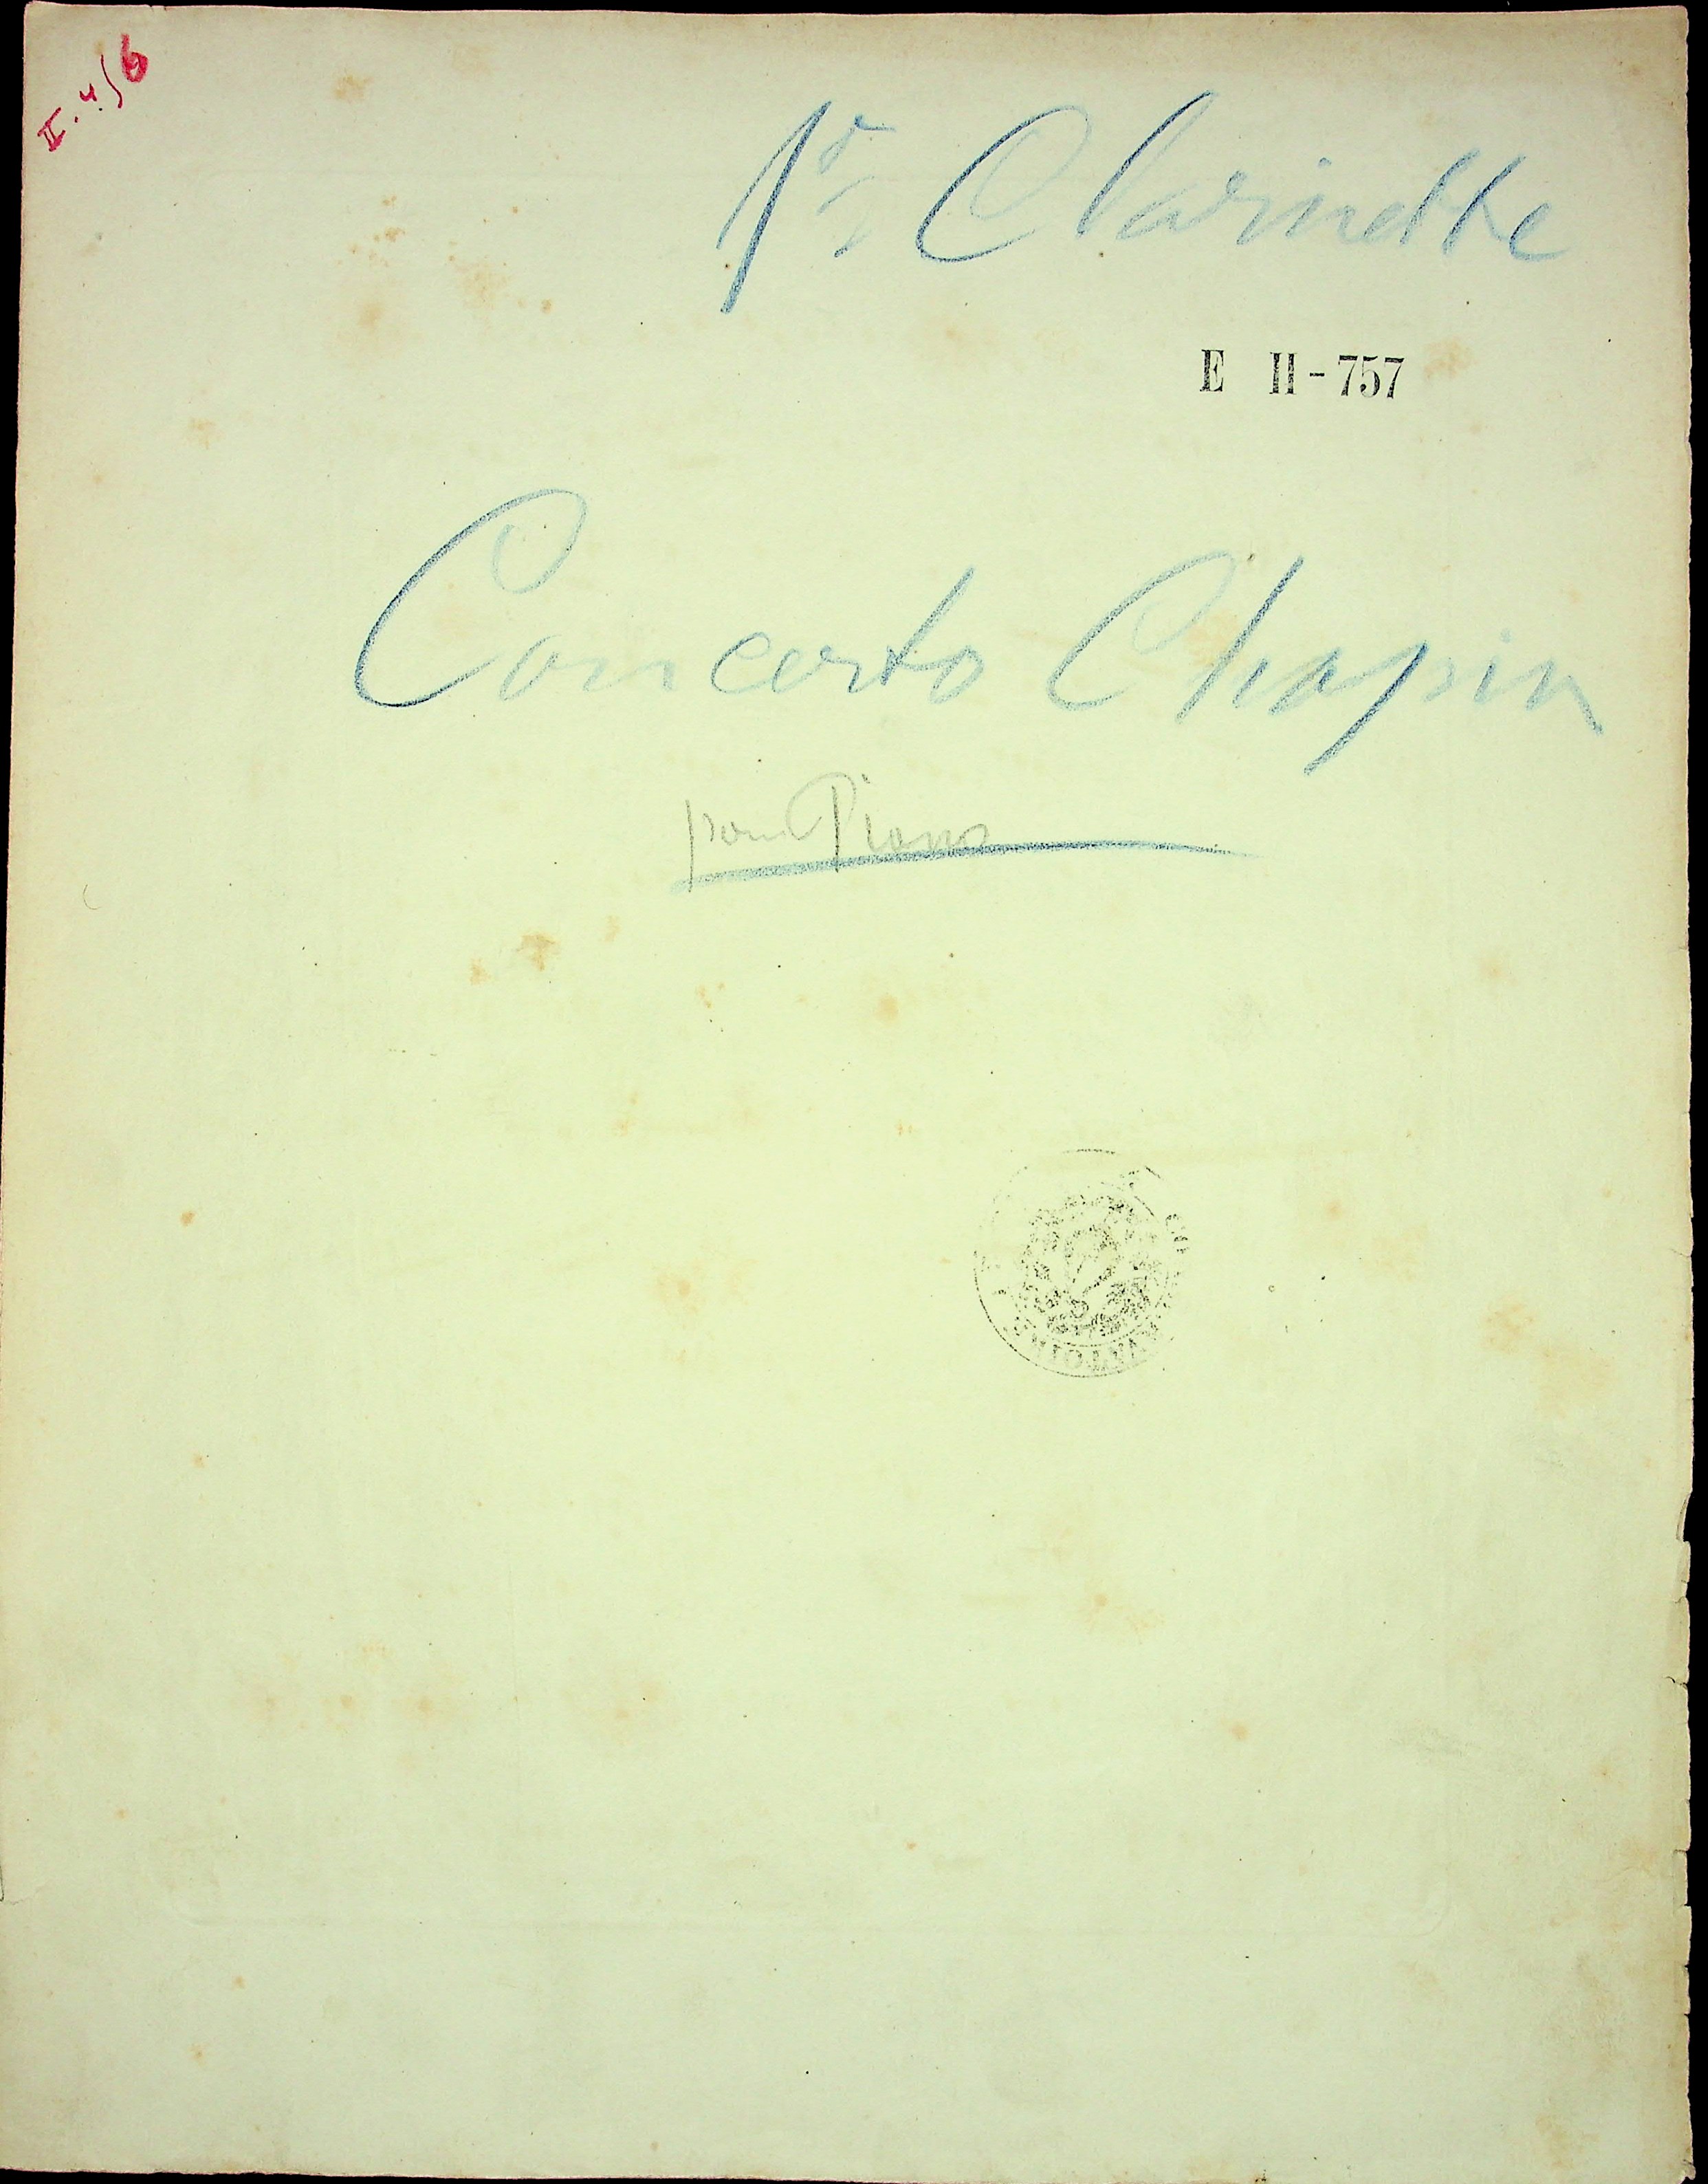 II. 4/6
1r Clarinette
E II-757
Concerto Chopin
pour Piano